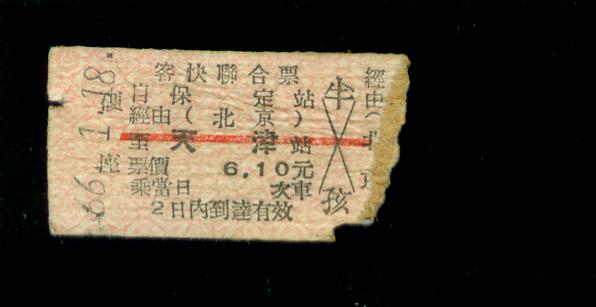 客快聯合票
自保定站
經由(北京)
至天津站
票價 6.10元
乘當日 次車
2日內到達有效
硬座
半
孩
經由(北
66.1.18.